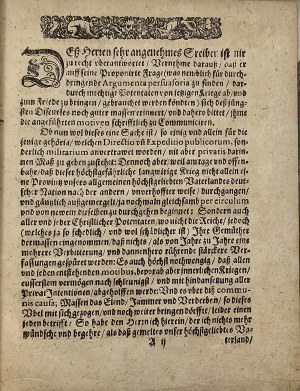 DEß Herren sehr angenehmes Sreiben ist mir
zu recht uberantwortet / Vernehme darauß / daß er
auff seine Proponirte Frage (was nemblich für durch-
dringende Argumenta persuasoria zu finden / dar-
durch mechtige Potentaten von jetzigen Kriege ab / und
zum Friede zu bringen / gebrauchet werden köndten / sich deß jüngs-
ten Discurses noch guter massen erinnert / und dahero bittet / ihme
die angeführten motiven schrifftlich zu Communiciren.
Ob nun wol dieses eine Sache ist / so einig und allein für die
jenige gehörig / welchen Directio und Expeditio publicorum, son-
derlich militarium anvertrawet worden / mit aber privatis darinn
Maß zu geben zustehet: Dennoch aber / weil am tage und offen-
bahr / daß dieser höchstgefährliche langwirige Krieg nicht allein ei-
ne Provinz unsers allgemeinen höchstgeliebten Vaterlandes deut-
scher Nation nach der andern / unverhoffter weise / durchgangen /
und gäntzlich außgemergelt / auch nochmaln gleichsamb per circulum
und von newem dieselben zu durchgehen beginnet: Sondern auch
aller und jeder Christlicher Potentaten / wo nicht die Reiche / jedoch
(welches ja so schedlich / und wol schädlicher ist) Ihre Gemüther
der massen eingenommen / daß nichts / als von Jahr zu Jahre eine
mehrere Verbitterung / und dannenhero rührende stärckere Ver-
fassungen gespüret werden: Es auch höchst nothwendig / daß allen
und jeden entstehenden motibus, bevorab aber innerlichen Kriegen /
eusserstem vermögen nach schleunigst / und mit hindansetzung aller
Privat Intentionen / abgeholffen werde: Und es uber diß commu-
nis causa; Massen das Elend / Jammer und Verderben / so dieses
Ubel mit sich gezogen / und noch weiter bringen dörffte / jeder einen
jeden betrifft. So habe den Herrn ich hierein / der ich nichts mehr
wündsche und begehre / als daß gemeltes unser höchstgeliebtes Va-
A ij terlandt /